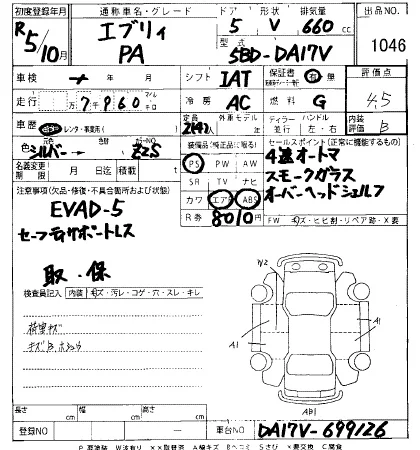 初度登録年月 通称車名・グレード ドア 形状 排気量 出品NO.
R5/10月 エブリィ PA 5 V 660cc 1046
型式 5BD-DA17V
車検 年 月 シフト IAT 保証書 有 無 評価点 4.5
走行 7,960 マイル キロ 冷房 AC 燃料 G
車歴 自家用 レンタ・事業用( ) 定員 ディーラー 並行 ハンドル 左・右 内装評価 B
色 シルバー 元色 色替 カラーNo Z2S 装備品(純正品に限る) セールスポイント(正常に機能するもの)
名義変更期限 月 日 積載 t PS PW AW 4速オートマ
SR TV ナビ スモークガラス
注意事項(欠品・修復・不具合箇所および状態) カワ エアB ABS オーバーヘッドシェルフ
EVAD-5 R券 8010円
セーフティサポートレス F キズ・ヒビ割・リペア跡・X要
取・保
検査員記入 内装 キズ・汚レ・コゲ・穴・スレ・キレ
荷室キズ
A1 A1
AB1
長さ cm 幅 cm 高さ cm
登録NO 車台NO DA17V-699126